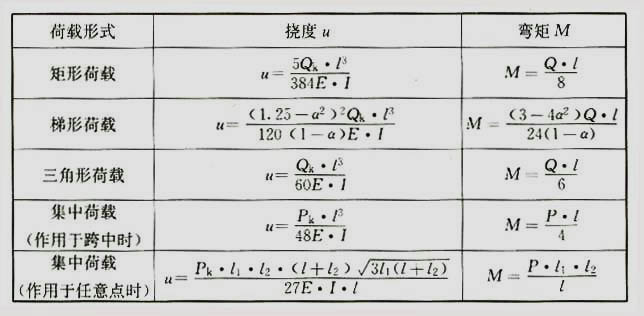 荷载形式 挠度 u 弯矩 M
矩形荷载 u=5Qk·l³/384E·I M=Q·l/8
梯形荷载 u=(1.25-α²)²Qk·l³/120(1-α)E·I M=(3-4α²)Q·l/24(1-α)
三角形荷载 u=Qk·l³/60E·I M=Q·l/6
集中荷载
(作用于跨中时) u=Pk·l³/48E·I M=P·l/4
集中荷载
(作用于任意点时) u=Pk·l₁·l₂·(l+l₂)√3l₁(l+l₂)/27E·I·l M=P·l₁·l₂/l